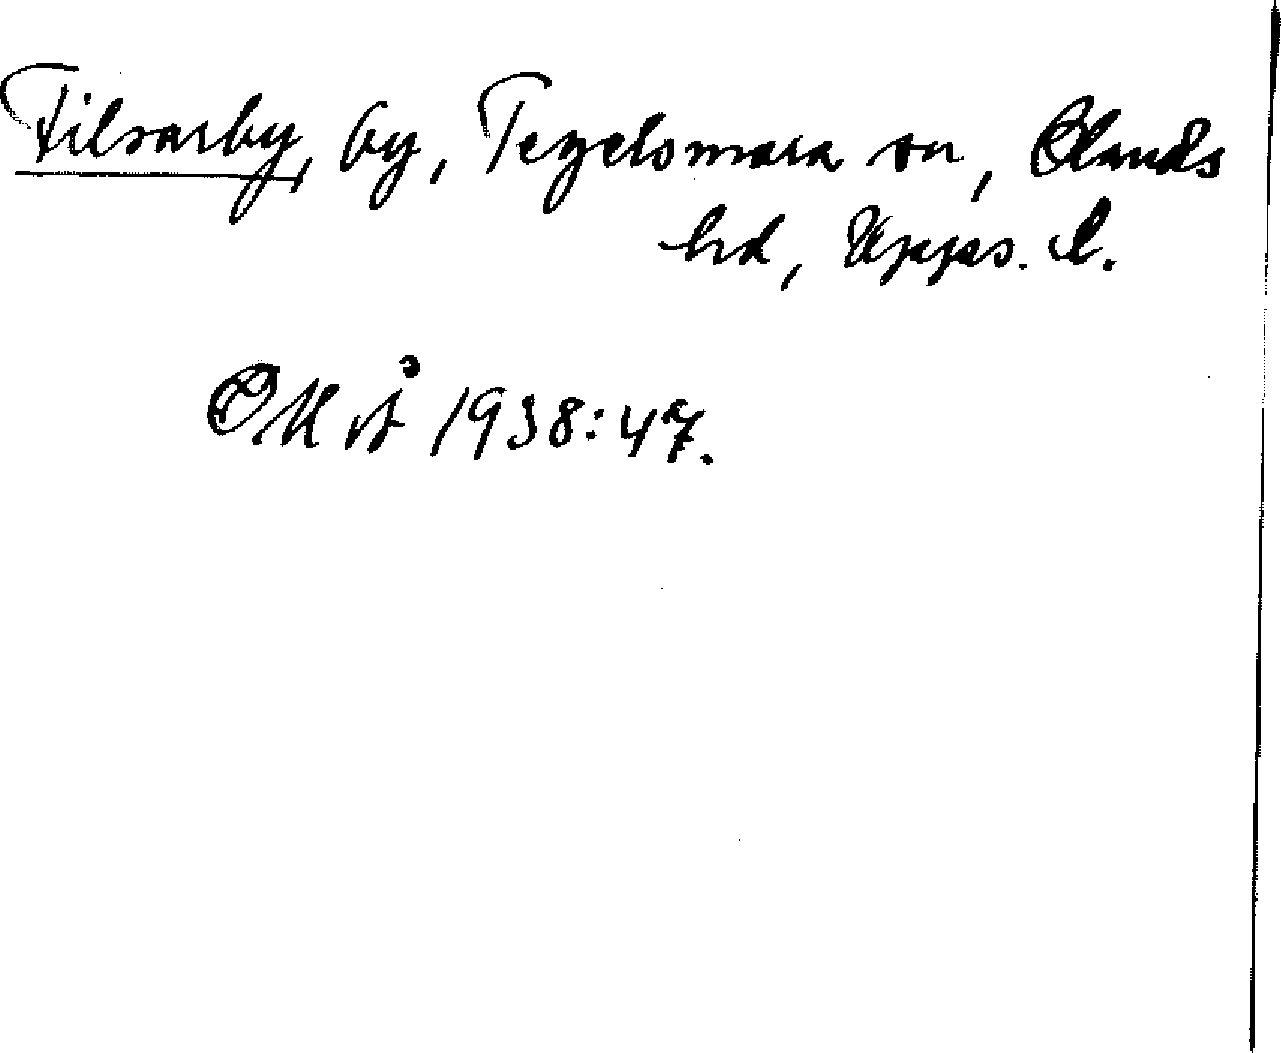 Filsarby, by, Tegelsmora sn, Olands
hd, Upps. l.
OKvÅ 1938:47.